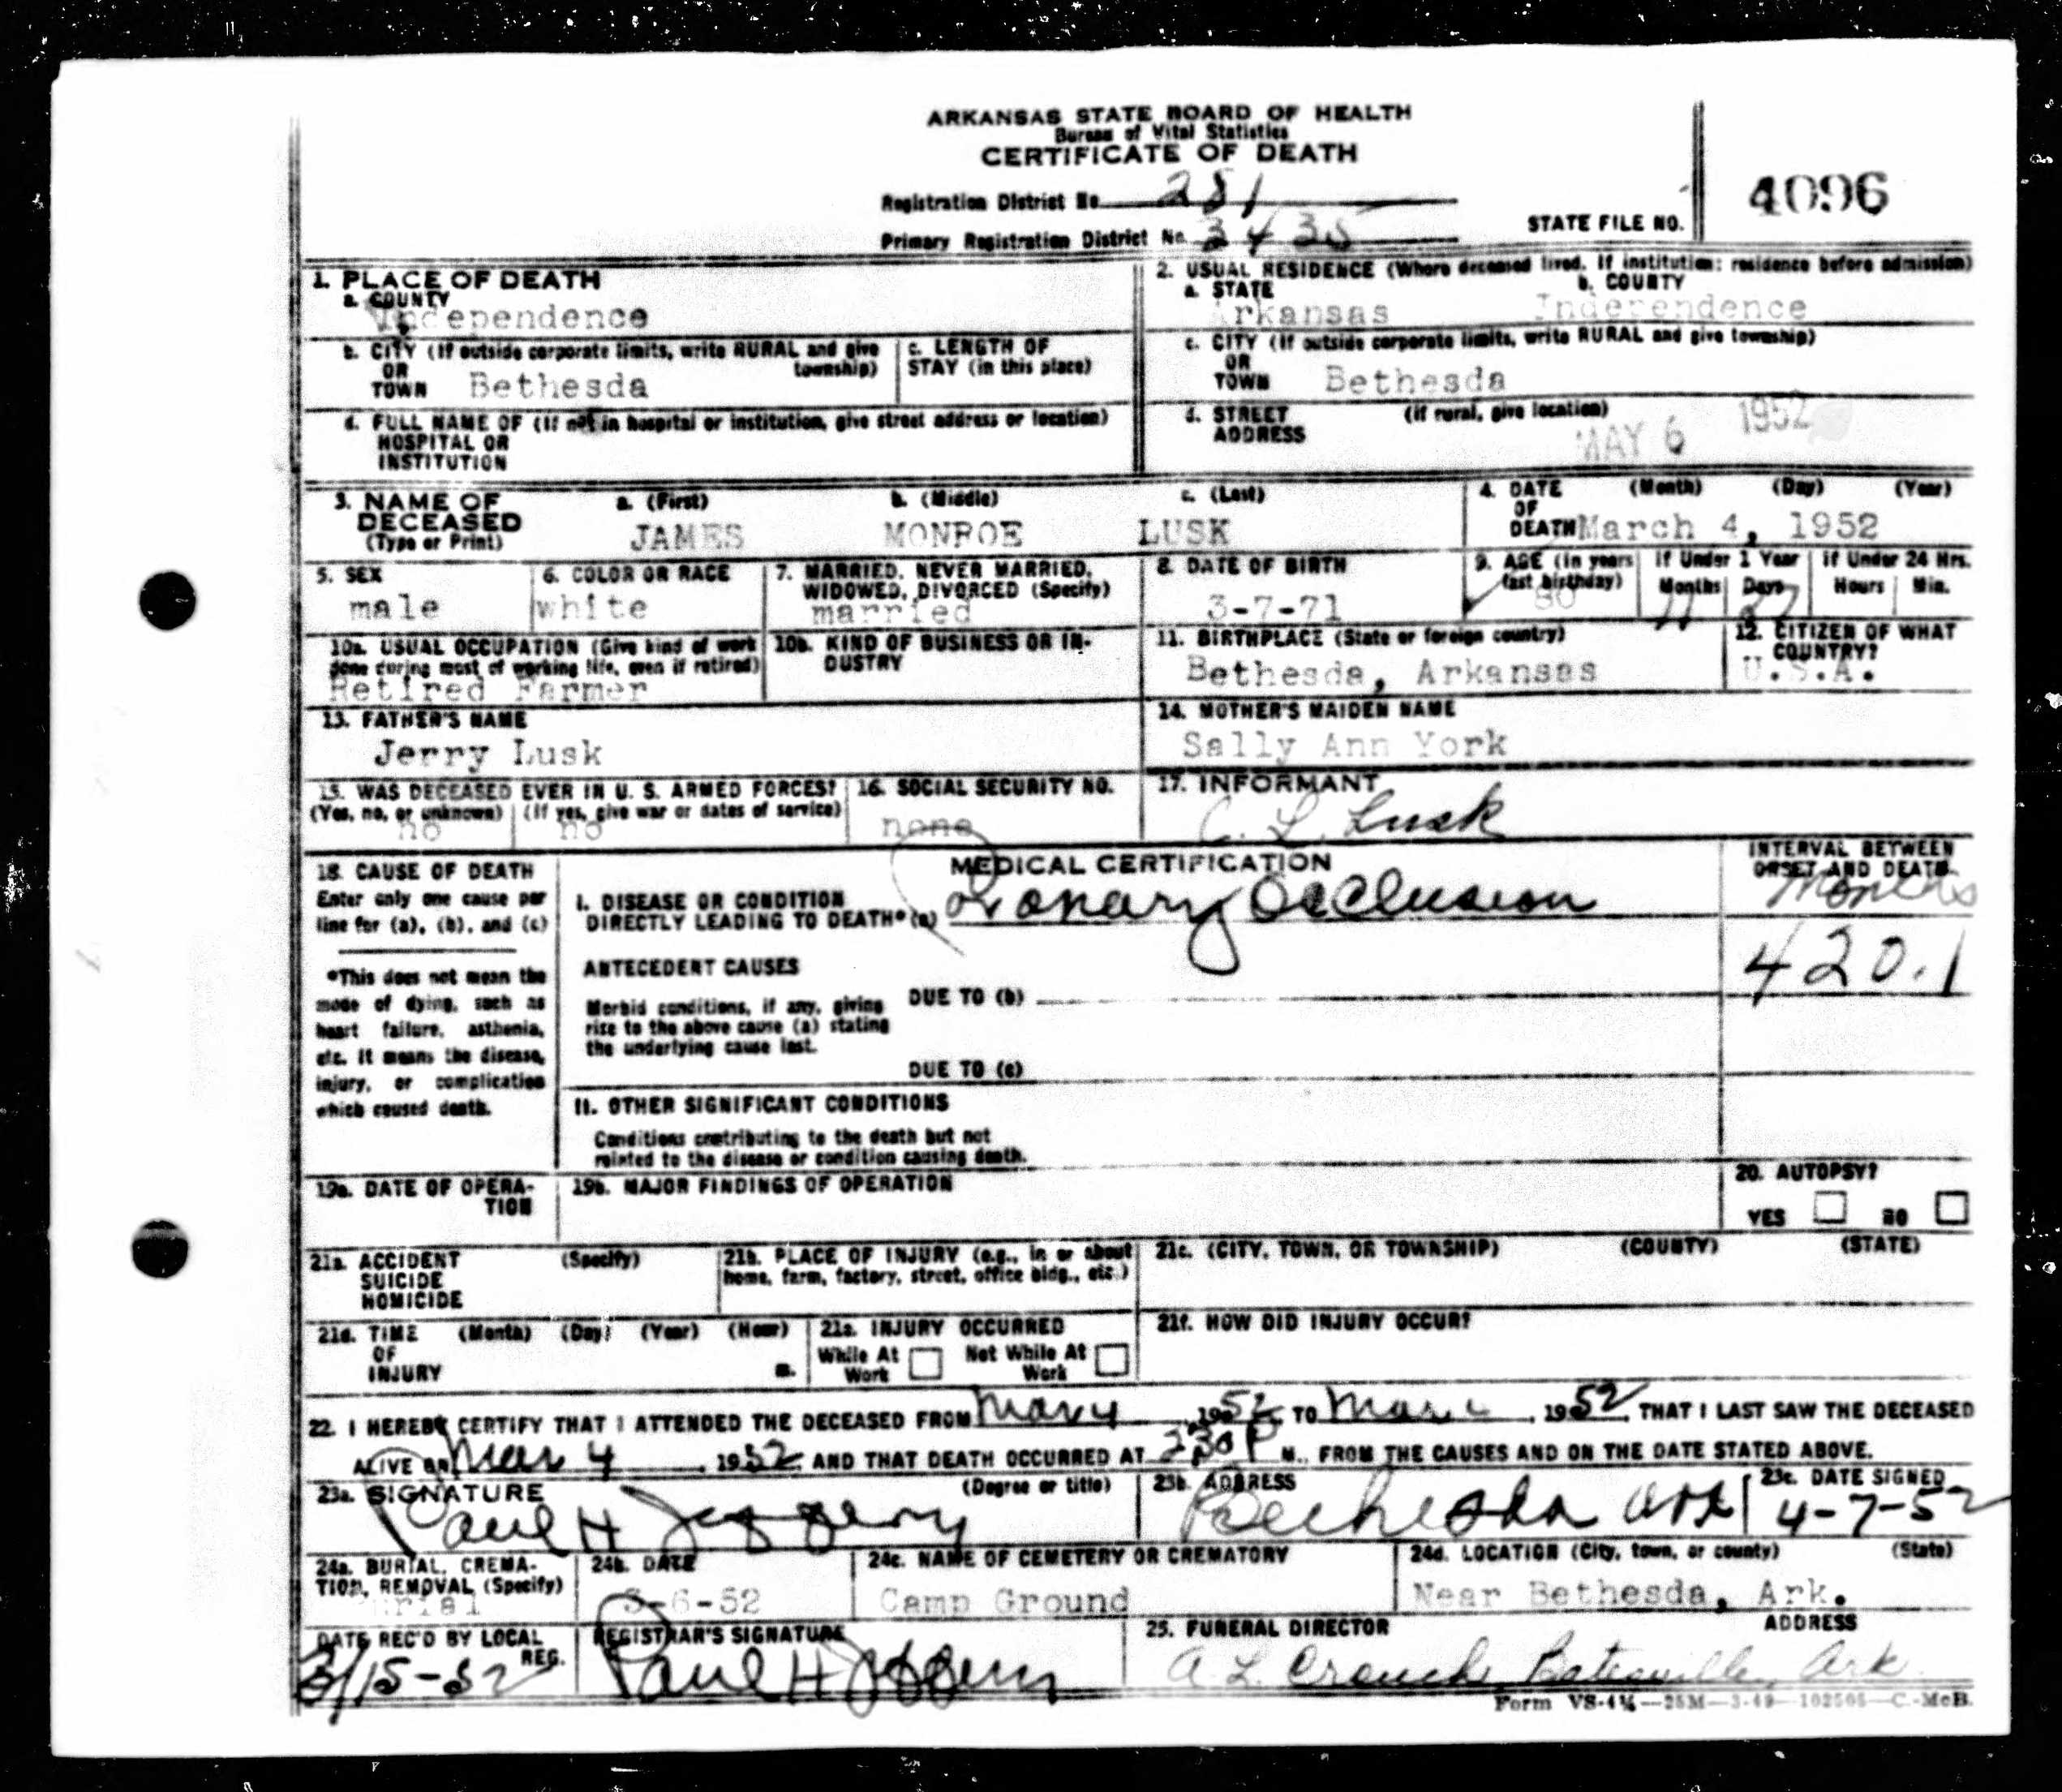 ARKANSAS STATE BOARD OF HEALTH
Bureau of Vital Statistics
CERTIFICATE OF DEATH
Registration District No. 281
Primary Registration District No. 3435
STATE FILE NO. 4096
1. PLACE OF DEATH
a. COUNTY
Independence
b. CITY (If outside corporate limits, write RURAL and give township)
OR
TOWN Bethesda
c. LENGTH OF
STAY (in this place)
d. FULL NAME OF (If not in hospital or institution, give street address or location)
HOSPITAL OR
INSTITUTION
2. USUAL RESIDENCE (Where deceased lived. If institution: residence before admission)
a. STATE b. COUNTY
Arkansas Independence
c. CITY (If outside corporate limits, write RURAL and give township)
OR
TOWN Bethesda
d. STREET (If rural, give location)
ADDRESS
MAY 6 1952
3. NAME OF
DECEASED
(Type or Print)
a. (First) b. (Middle) c. (Last)
JAMES MONROE LUSK
4. DATE (Month) (Day) (Year)
OF
DEATH March 4, 1952
5. SEX
male
6. COLOR OR RACE
white
7. MARRIED, NEVER MARRIED,
WIDOWED, DIVORCED (Specify)
married
8. DATE OF BIRTH
3-7-71
9. AGE (In years
last birthday)
80
If Under 1 Year
Months Days
11 27
If Under 24 Hrs.
Hours Min.
10a. USUAL OCCUPATION (Give kind of work
done during most of working life, even if retired)
Retired Farmer
10b. KIND OF BUSINESS OR IN-
DUSTRY
11. BIRTHPLACE (State or foreign country)
Bethesda, Arkansas
12. CITIZEN OF WHAT
COUNTRY?
U.S.A.
13. FATHER'S NAME
Jerry Lusk
14. MOTHER'S MAIDEN NAME
Sally Ann York
15. WAS DECEASED EVER IN U. S. ARMED FORCES?
(Yes, no, or unknown) (If yes, give war or dates of service)
no no
16. SOCIAL SECURITY NO.
none
17. INFORMANT
C. L. Lusk
18. CAUSE OF DEATH
Enter only one cause per
line for (a), (b), and (c)
*This does not mean the
mode of dying, such as
heart failure, asthenia,
etc. It means the disease,
injury, or complication
which caused death.
MEDICAL CERTIFICATION
I. DISEASE OR CONDITION
DIRECTLY LEADING TO DEATH* (a) Occlusion
ANTECEDENT CAUSES
Morbid conditions, if any, giving
rise to the above cause (a) stating
the underlying cause last.
DUE TO (b)
DUE TO (c)
II. OTHER SIGNIFICANT CONDITIONS
Conditions contributing to the death but not
related to the disease or condition causing death.
INTERVAL BETWEEN
ONSET AND DEATH
Months
420.1
19a. DATE OF OPERA-
TION
19b. MAJOR FINDINGS OF OPERATION
20. AUTOPSY?
YES NO
21a. ACCIDENT (Specify)
SUICIDE
HOMICIDE
21b. PLACE OF INJURY (e.g., in or about
home, farm, factory, street, office bldg., etc.)
21c. (CITY, TOWN, OR TOWNSHIP) (COUNTY) (STATE)
21d. TIME (Month) (Day) (Year) (Hour)
OF
INJURY m.
21e. INJURY OCCURRED
While At Work Not While At Work
21f. HOW DID INJURY OCCUR?
22. I HEREBY CERTIFY THAT I ATTENDED THE DECEASED FROM Mar 4, 1952 TO Mar 4, 1952, THAT I LAST SAW THE DECEASED
ALIVE ON Mar 4, 1952, AND THAT DEATH OCCURRED AT 230 P M., FROM THE CAUSES AND ON THE DATE STATED ABOVE.
23a. SIGNATURE (Degree or title)
Paul H Jeffery
23b. ADDRESS
Bethesda Ark
23c. DATE SIGNED
4-7-52
24a. BURIAL, CREMA-
TION, REMOVAL (Specify)
Burial
24b. DATE
3-6-52
24c. NAME OF CEMETERY OR CREMATORY
Camp Ground
24d. LOCATION (City, town, or county) (State)
Near Bethesda, Ark.
DATE REC'D BY LOCAL
REG.
3/15-52
REGISTRAR'S SIGNATURE
Paul H Jeffery
25. FUNERAL DIRECTOR ADDRESS
A L Crouch, Batesville, Ark
Form VS-4¼—25M—3-49—102505—C.-McB.